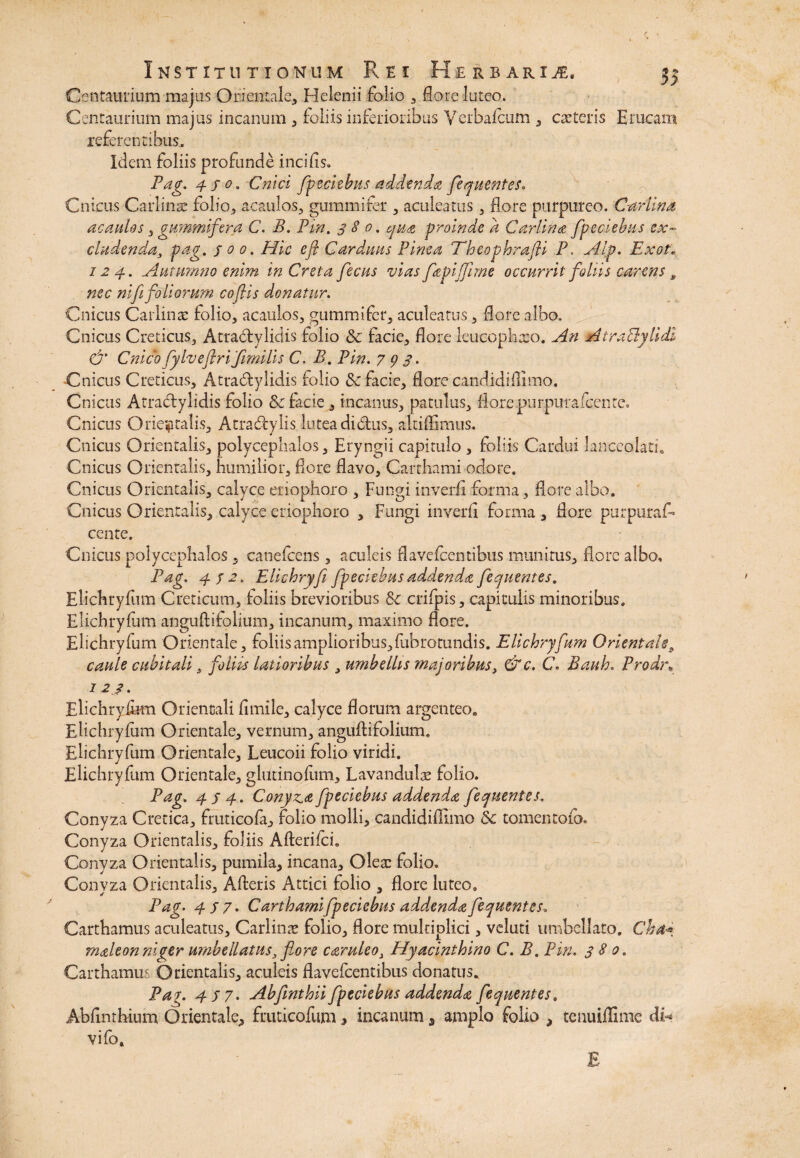 INSTITUTIONUM REI HERBARIÆ. 33
Centaurium majus Orientale, Helenii folio , flore luteo.
Centaurium majus incanum , foliis inferioribus Verbaſcum , cæteris Erucam
referentibus.
Idem foliis profundè inciſis.
Pag. 450. Cnici ſpeciebus addendæ ſequentes.
Cnicus Carlinæ folio, acaulos, gummifer , aculeatus , flore purpureo. Carlina
acaulos , gummifera C. B. Pin. 380. quæ proinde à Carlinæ ſpeciebus ex-
cludenda, pag. 500. Hic eſt Carduus Pinea Theophraſti P. Alp. Exot.
124. Autumno enim in Creta ſecus vias ſæpiſſime occurrit foliis carens ,
nec niſi foliorum coſtis donatur.
Cnicus Carlinæ folio, acaulos, gummifer, aculeatus , flore albo.
Cnicus Creticus, Atractylidis folio & facie, flore leucophæo. An Atractylidi
& Cnico ſylveſtri ſimilis C. B. Pin. 793.
Cnicus Creticus, Atractylidis folio & facie, flore candidiſſimo.
Cnicus Atractylidis folio & facie , incanus, patulus, flore purpuraſcente.
Cnicus Orientalis, Atractylis lutea dictus, altiſſimus.
Cnicus Orientalis, polycephalos , Eryngii capitulo , foliis Cardui lanceolati.
Cnicus Orientalis, humilior, flore flavo, Carthami odore.
Cnicus Orientalis, calyce eriophoro , Fungi inverſi forma , flore albo.
Cnicus Orientalis, calyce eriophoro , Fungi inverſi forma , flore purpuraſ-
cente.
Cnicus polycephalos , caneſcens , aculeis flaveſcentibus munitus, flore albo.
Pag. 452. Elichryſi ſpeciebus addendæ ſequentes.
Elichryſum Creticum, foliis brevioribus & criſpis , capitulis minoribus.
Elichryſum anguſtifolium, incanum, maximo flore.
Elichryſum Orientale , foliis amplioribus, ſubrotundis. Elichryſum Orientale,
caule cubitali , foliis latioribus , umbellis majoribus, &c. C. Bauh. Prodr.
123.
Elichryſum Orientali ſimile, calyce florum argenteo.
Elichryſum Orientale, vernum, anguſtifolium.
Elichryſum Orientale, Leucoii folio viridi.
Elichryſum Orientale, glutinoſum, Lavandulæ folio.
Pag. 454. Conyzæ ſpeciebus addendæ ſequentes.
Conyza Cretica, fruticoſa, folio molli, candidiſſimo & tomentoſo.
Conyza Orientalis, foliis Aſteriſci.
Conyza Orientalis, pumila, incana, Oleæ folio.
Conyza Orientalis, Aſteris Attici folio , flore luteo.
Pag. 457. Carthami ſpeciebus addendæ ſequentes.
Carthamus aculeatus, Carlinæ folio, flore multiplici , veluti umbellato. Cha-
mæleon niger umbellatus, flore cæruleo, Hyacinthino C. B. Pin. 380.
Carthamus Orientalis, aculeis flaveſcentibus donatus.
Pag. 457. Abſinthii ſpeciebus addendæ ſequentes.
Abſinthium Orientale, fruticoſum , incanum , amplo folio , tenuiſſime di-
viſo.
E